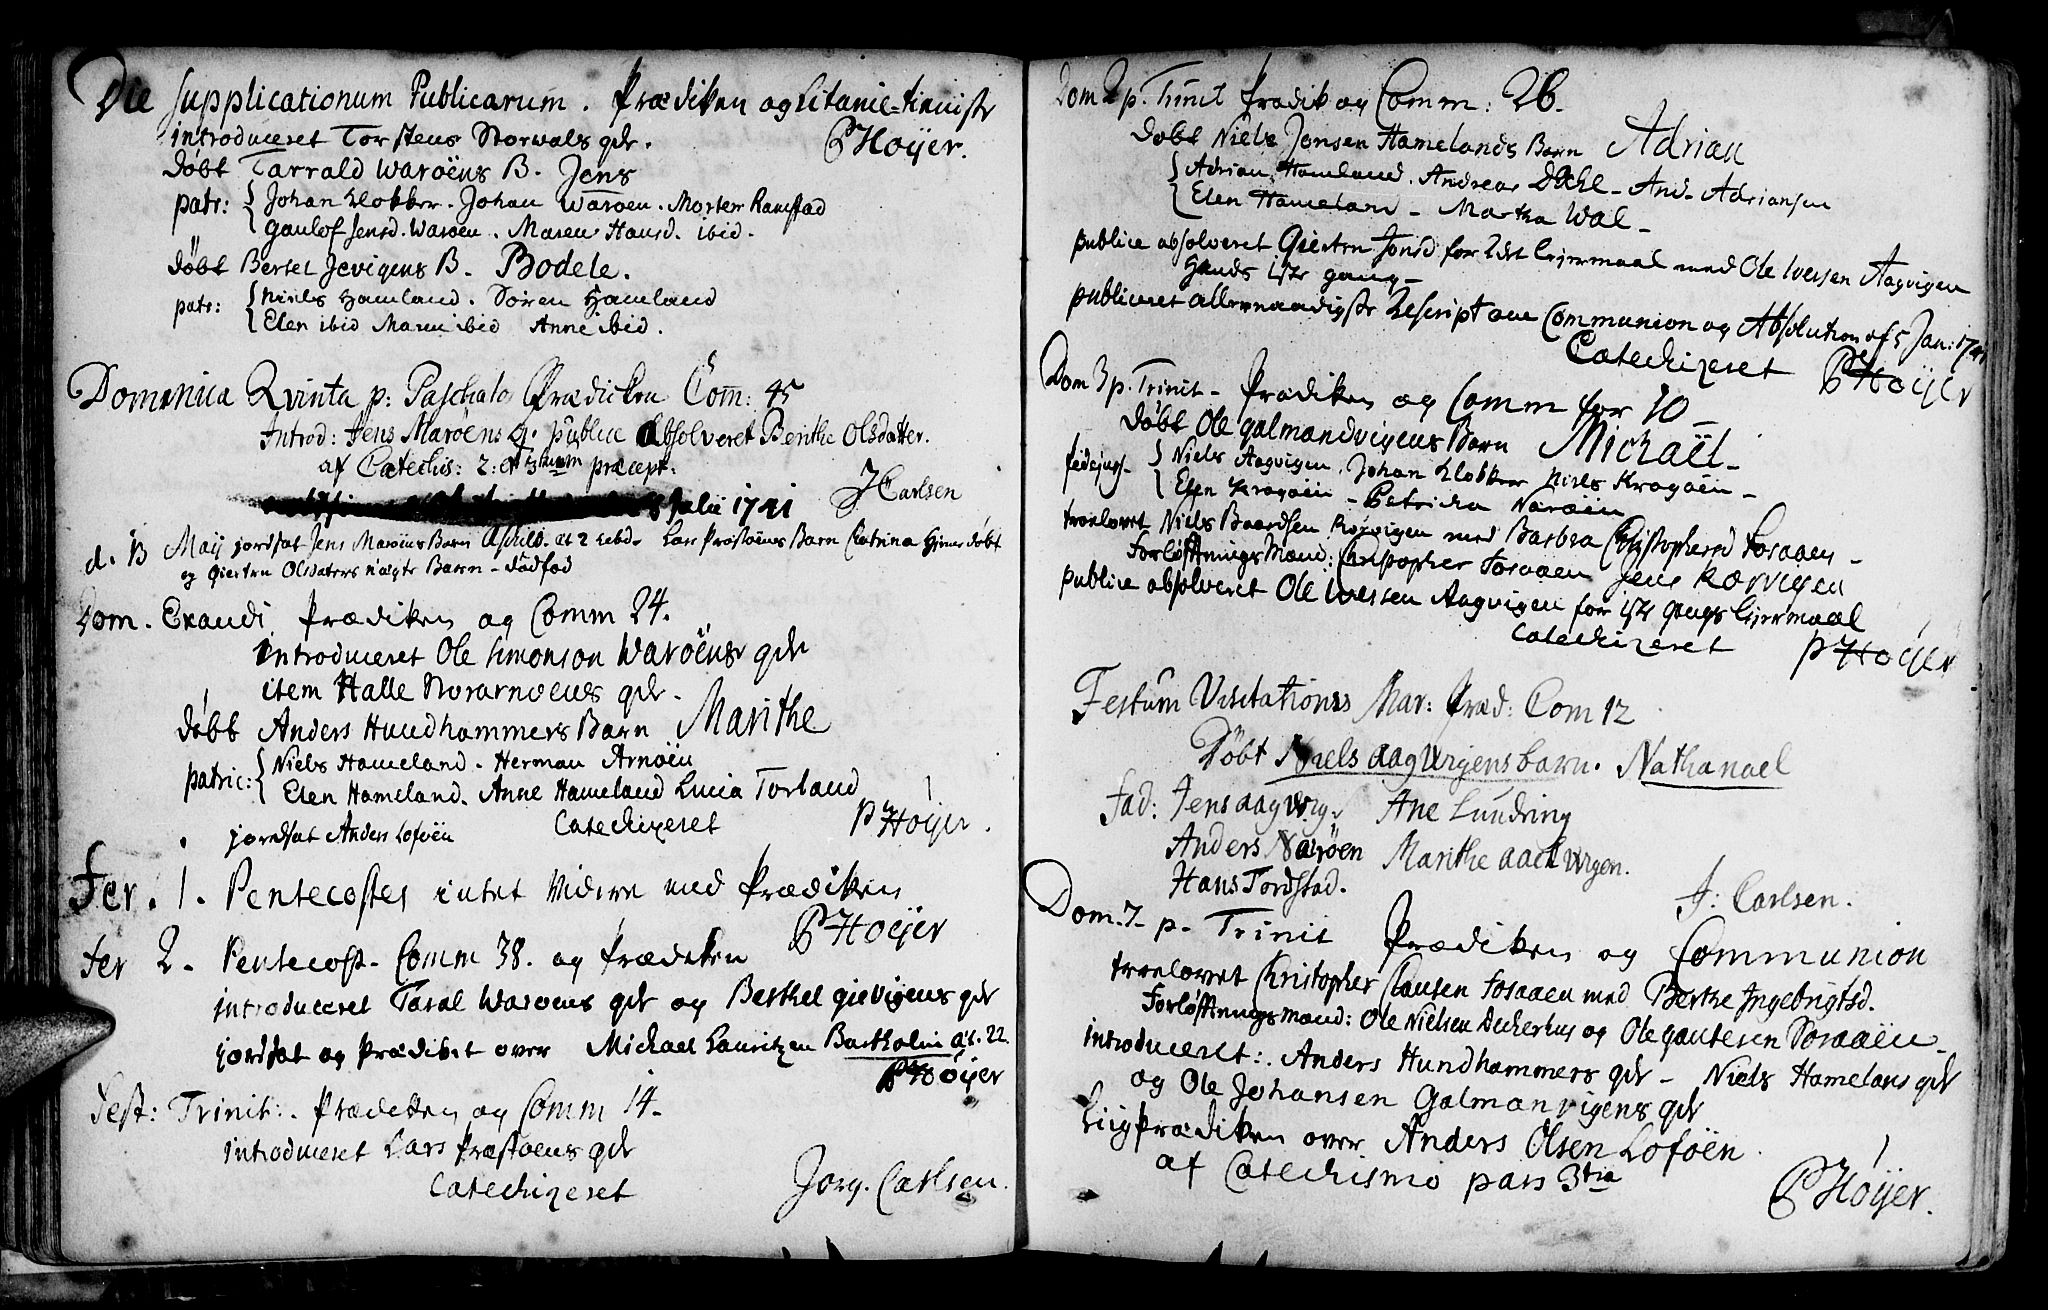 Die Supplicationum Publicarum. Prædiken og Litanie-tieniste
introduceret Torstens Storvals qdr.
PHøyer.
Døbt Tarrald Warøens B. Jens
patr: Johan Klokker. Johan Warøen. Morten Ramstad
Gunlof Jensd. Warøen. Maren Hansd. ibid.
Døbt Bertel Jevigens B. Bodele.
patr: Niels Hameland. Sören Hameland
Elen ibid Maren ibid Anne ibid.
Domenica Qvinta p: Paschatos Prædicken Com: 45
Introd: Jens Marøens q. publice absolveret Berithe Olsdatter.
af Catechis: 2: et 3tium præcept.
Julii 1741 JCarlsen
d. 13 Maij jordsat Jens Marøens Barn Aschild. æt 2 hebd. Lars Præstøens Barn Chatrina hjemedøbt
og Giertru Olsdaters uægte Barn - dødfød
Dom. Exaudi Prædiken og Comm 24.
introduceret Ole Simonson Warøens qdr
item Halle Storarnøens qdr.
Døbt Anders Hundhammers Barn Marithe
patric: Niels Hameland. Herman Arnøen
Elen Hameland. Anne Hameland Lucia Torland
jordsat Anders Loføen Catechizeret PHøijer.
Fer. 1. Pentecostes intet videre med Prædiken
PHøyer
Fer 2. Pentecost. Comm 38. og Prædiken
introduceret Taral Warøens qdr og Berthel gievigens qdr
jordsat og Prædiket over Michael Lauritzen Bartholin æt. 22
PHøijer
Fest: Trinit:. Prædiken og Comm 14.
introduceret Lars Præstøens qdr
Catechizeret
Jörg. Carlsen.
Dom 2 p. Trinit Prædik og Comm: 26.
Døbt Niels Jensen Hamelands Barn Adrian
Adrian Hameland. Andreas Dahl - And. Adriansen
Elen Hameland - Martha Wal -
publice absolveret Giertru Jonsd for 2det Leiermaal med Ole Iversen Aagvigen
hands 1ste gang -
publiceret allernaadigste Rescript om Communion og Absolution af 5 Jan: 1741
Catechizeret PHøijer
Dom 3 p. Trinit - Prædiken og Comm for 10 -
Døbt Ole Galmandvigens Barn Michaël -
fidejus. Niels Aagvigen. Johan Klokker Niels Kragøen -
Elen Kragøen - Petricha Narøen
troelovet Niels Baardsen Korvigen med Barbra Christophersd Foraaen -
Forløftnings Mænd: Christopher Foraaen Jens Korvigen
publice absolveret Ole Iversen Aagvigen for 1ste gangs Leiermaal
Catechizeret PHøijer
Festum Visitationis Mar: Præd: Com 12
Døbt Niels aagvigens barn. Nathanael
Fad: Jens aagvig. Ane Lundring
Anders Narøen Marithe aachvigen.
Hans Tordstad.
J: Carlsen.
Dom. 7 - p. Trinit Prædiken og Communion
troelovet Christopher Clausen Foraaen med Berthe Ingebrigtsd.
Forløftnings mænd: Ole Nielsen Deckerhus og Ole Gautesen Foraaen -
introduceret: Anders Hundhammers qdr - Niels Hamelans qdr
og Ole Johansen Galmanvigens qdr
Liigprædiken over Anders Olsen Loføen
af Catechismo pars 3tia
PHøijer.